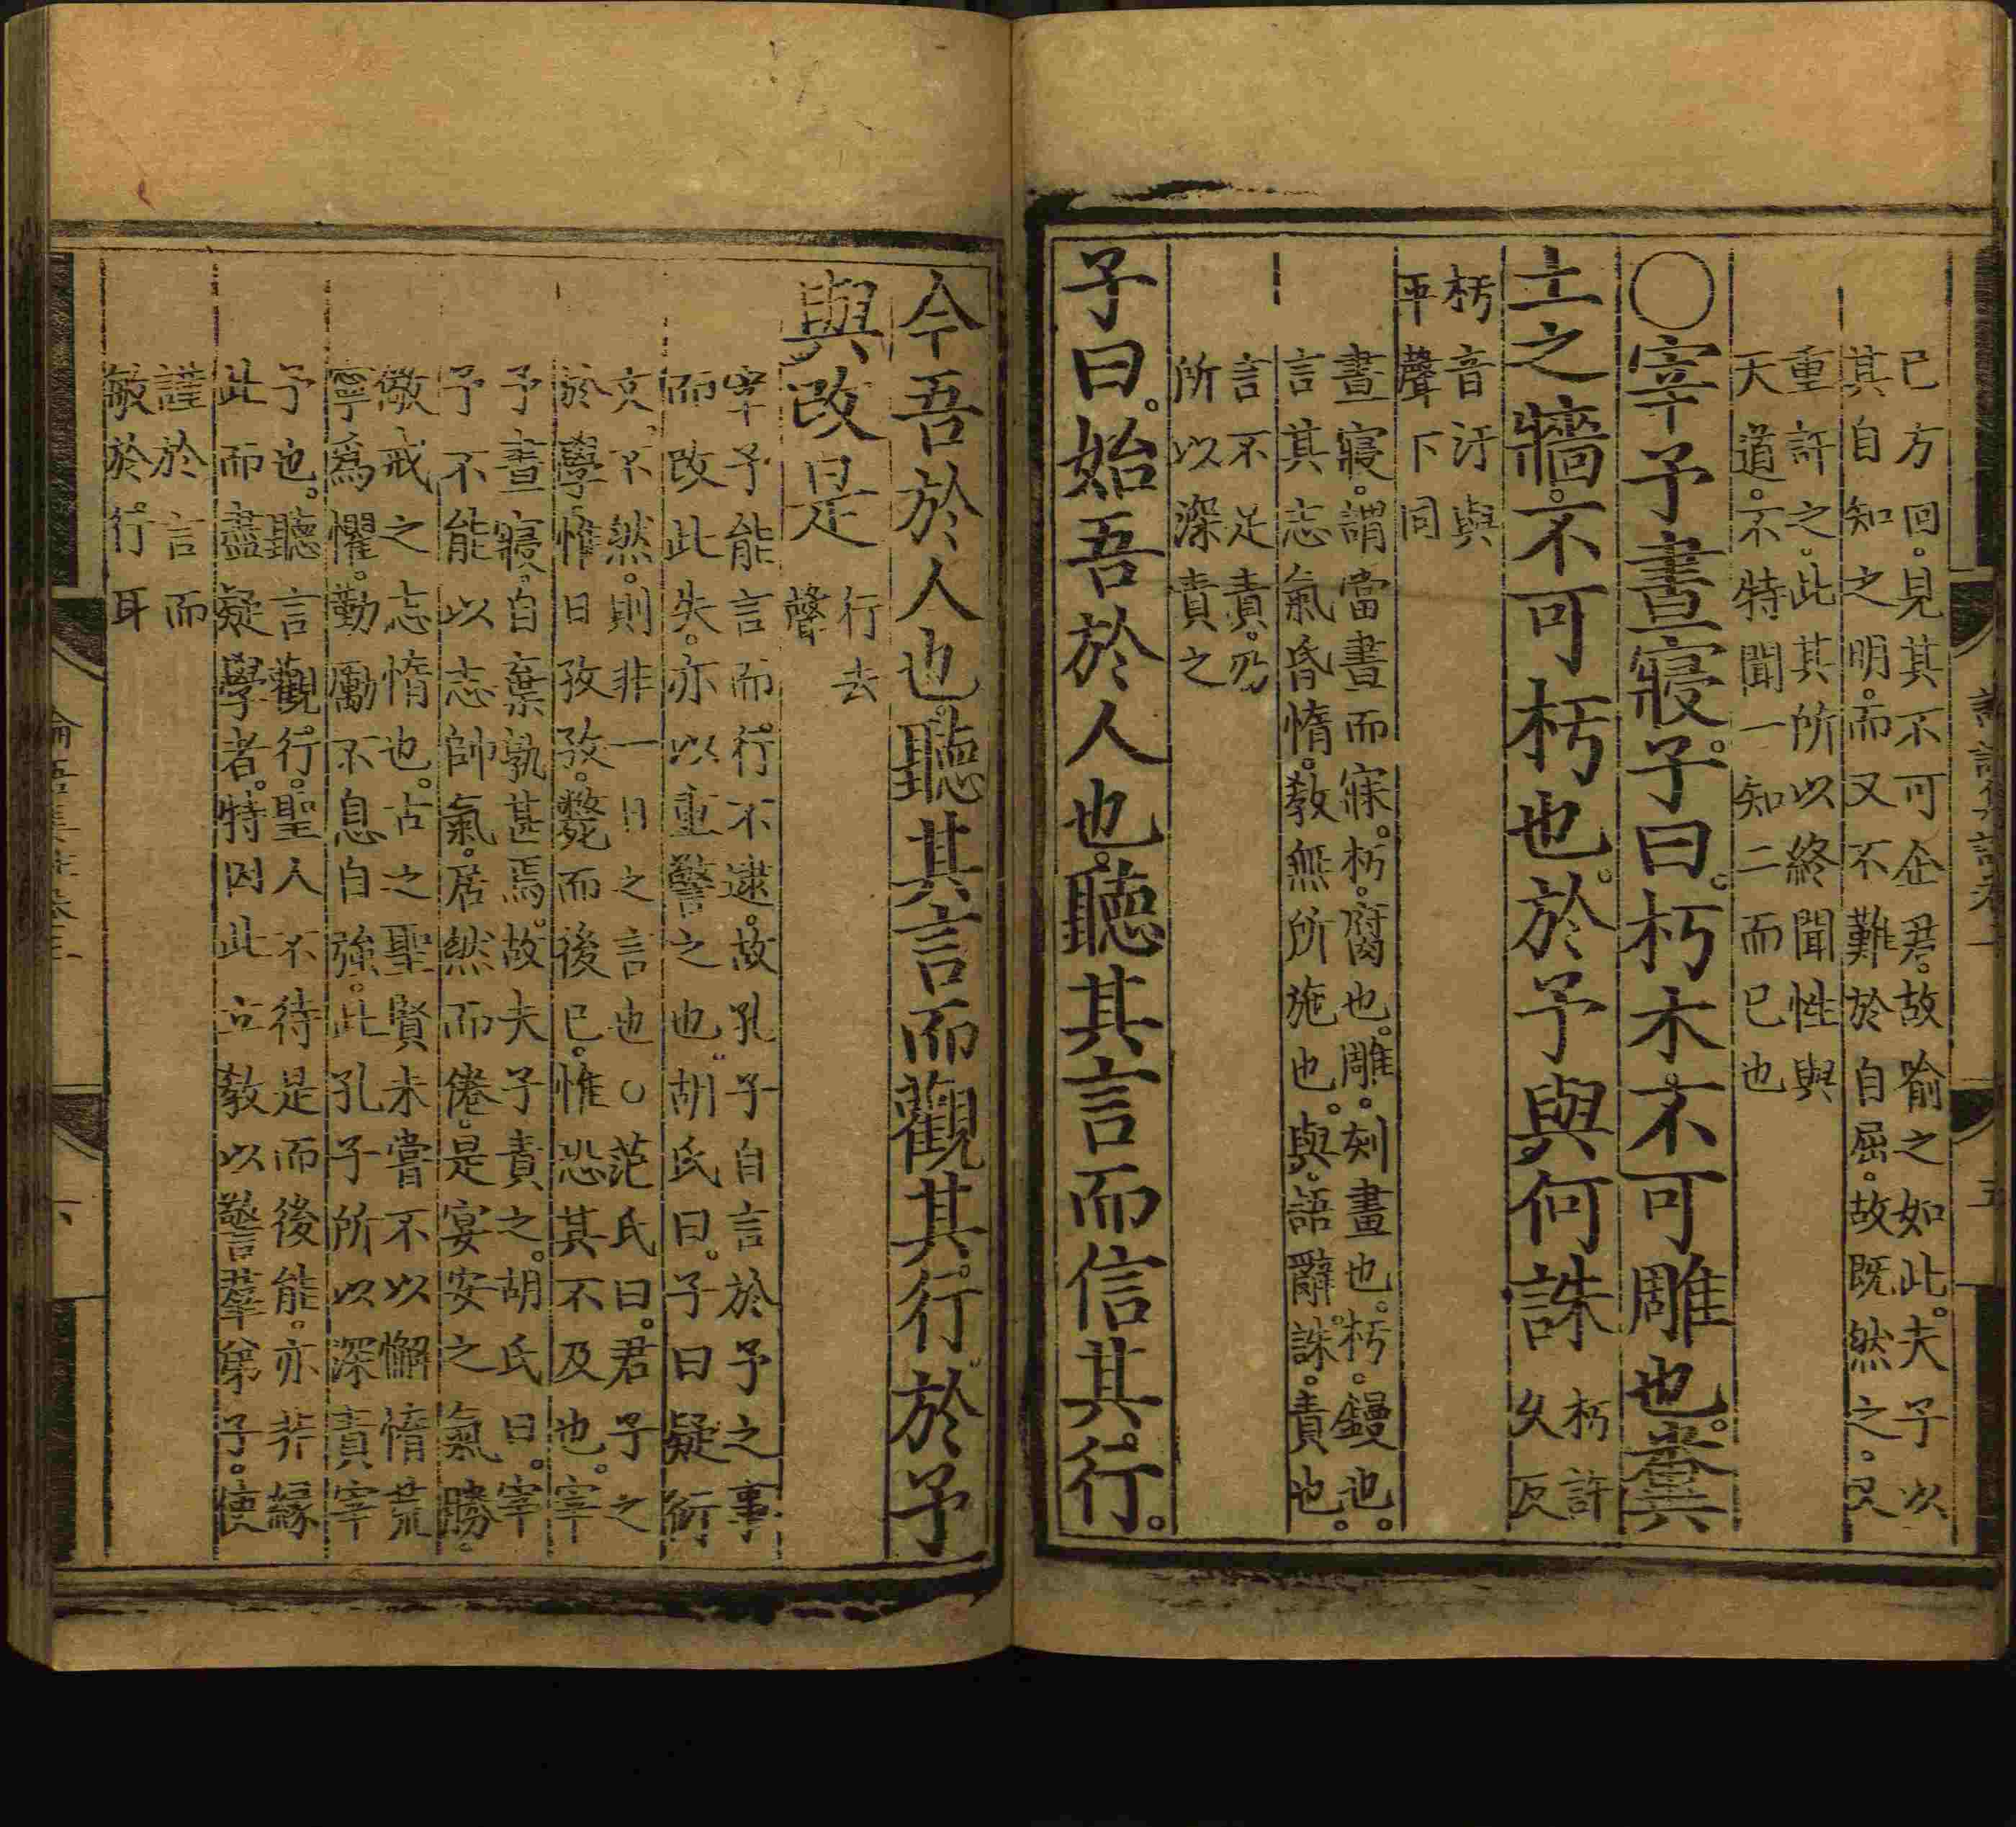 已方回。見其不可企及。故喻之如此。夫子以
其自知之明。而又不難於自屈。故既然之。又
重許之。此其所以終聞性與
天道。不特聞一知二而已也
○宰予晝寢。子曰。朽木不可雕也。糞
土之牆。不可杇也。於予與何誅
朽許
久反
杇音汙與
平聲下同
晝寢。謂當晝而寐。朽。腐也。雕。刻畫也。杇。鏝也。
言其志氣昏惰。教無所施也。與。語辭。誅。責也。
言不足責。乃
所以深責之
子曰。始吾於人也。聽其言而信其行。
今吾於人也。聽其言而觀其行。於予
與改是
行去
聲
宰予能言而行不逮。故孔子自言於予之事
而改此失。亦以重警之也。胡氏曰。子曰疑衍
文。不然。則非一日之言也○范氏曰。君子之
於學。惟日孜孜。斃而後已。惟恐其不及也。宰
予晝寢。自棄孰甚焉。故夫子責之。胡氏曰。宰
予不能以志帥氣。居然而倦。是宴安之氣勝。
儆戒之志惰也。古之聖賢未嘗不以懈惰荒
寧爲懼。勤勵不息自強。此孔子所以深責宰
予也。聽言觀行。聖人不待是而後能。亦非緣
此而盡疑學者。特因此立教以警羣弟子。使
謹於言而
敏於行耳